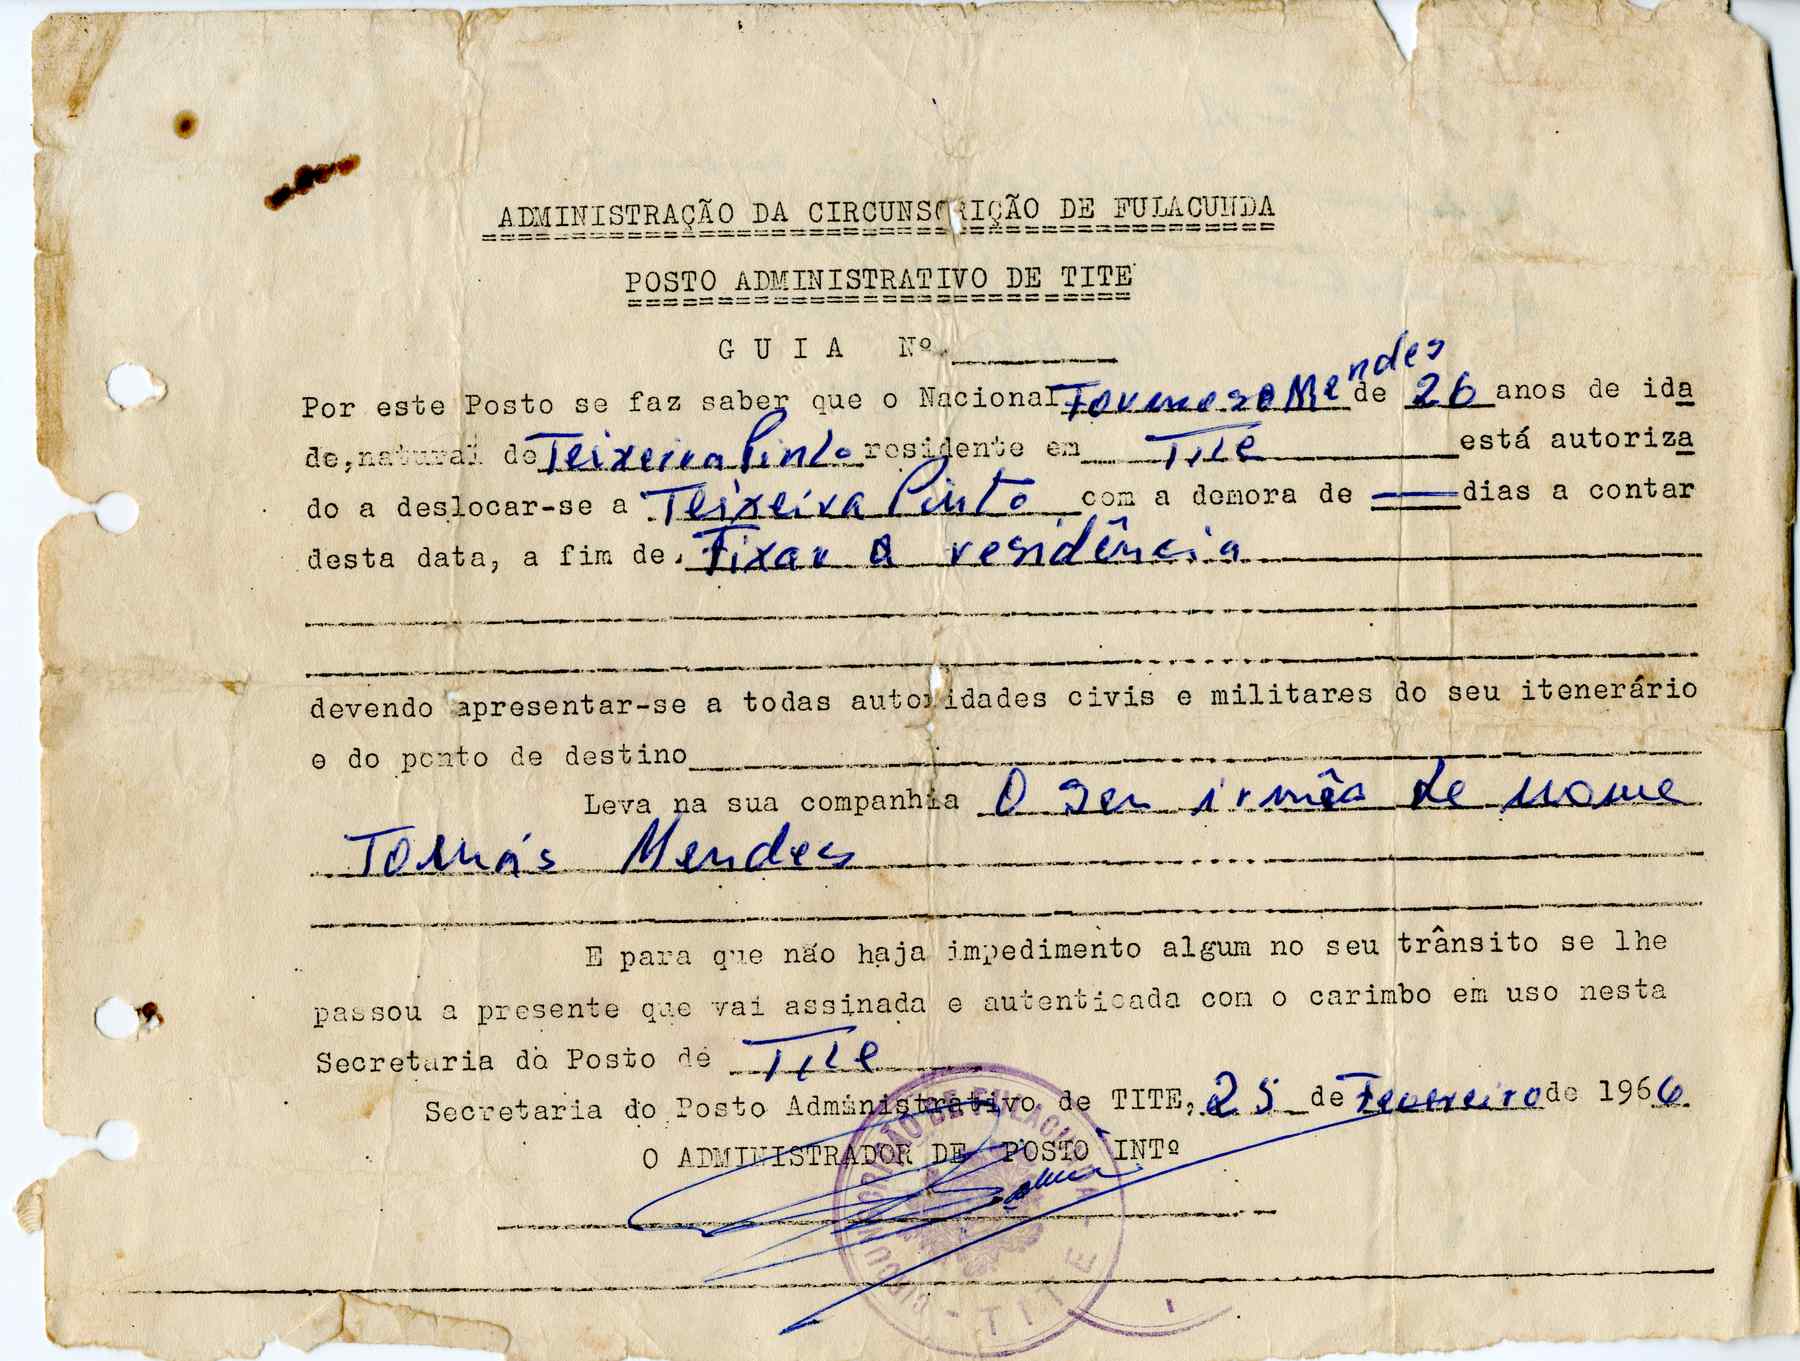 ADMINISTRAÇÃO DA CIRCUNSCRIÇÃO DE FULACUNDA
POSTO ADMINISTRATIVO DE TITE
GUIA Nº
Por este Posto se faz saber que o Nacional Mendes de 26 anos de ida
de, natural de Teixeira Pinto residente em Tite está autoriza
do a deslocar-se a Teixeira Pinto com a demora de dias a contar
desta data, a fim de Fixar a residência
devendo apresentar-se a todas autoridades civis e militares do seu itenerário
e do ponto de destino
Leva na sua companhia O seu irmão de nome
Tomás Mendes
E para que não haja impedimento algum no seu trânsito se lhe
passou a presente que vai assinada e autenticada com o carimbo em uso nesta
Secretaria do Posto de Tite
Secretaria do Posto Administrativo de TITE, 25 de Fevereiro de 1966
O ADMINISTRADOR DE POSTO INTº
CIRCUNSCRIÇÃO DE FULACUNDA - TITE -